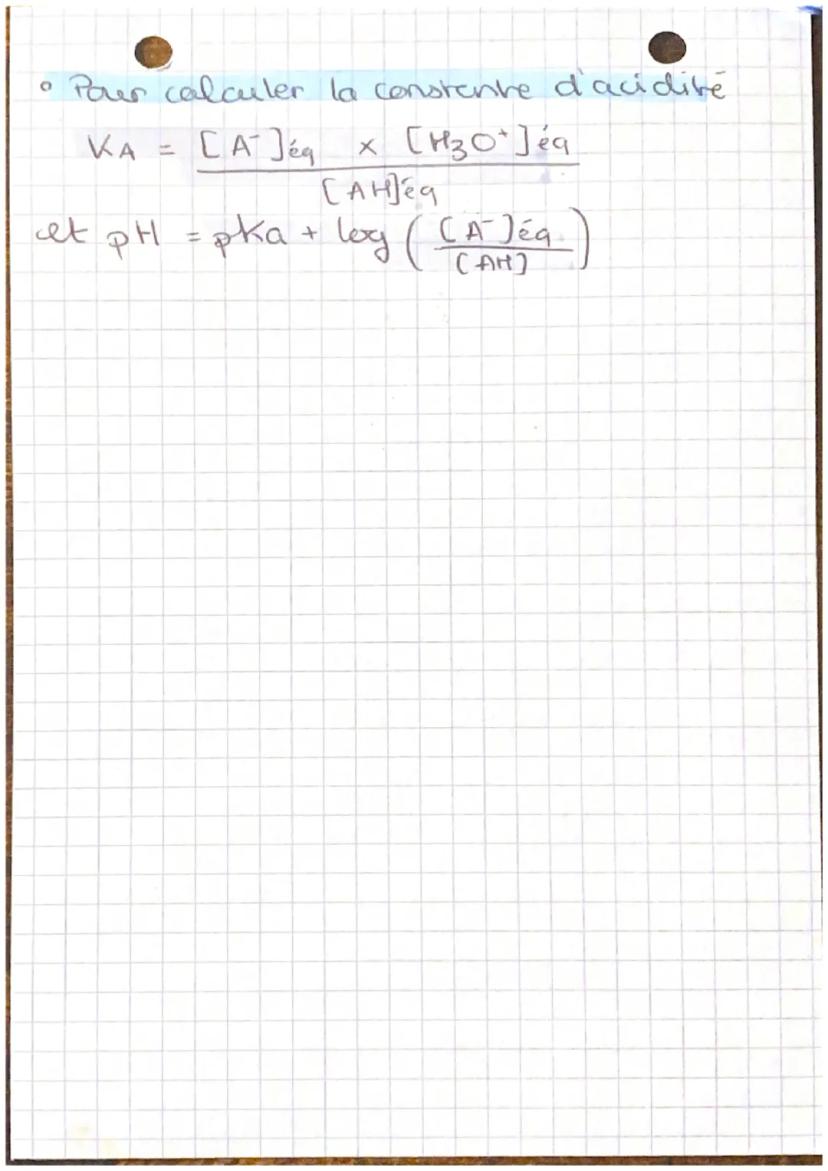 ° Pour calculer la constante d'acidité
KA = [A⁻]éq × [H3O⁺]éq
[AH]éq
et pH = pKa + log ( [A⁻]éq )
[AH]